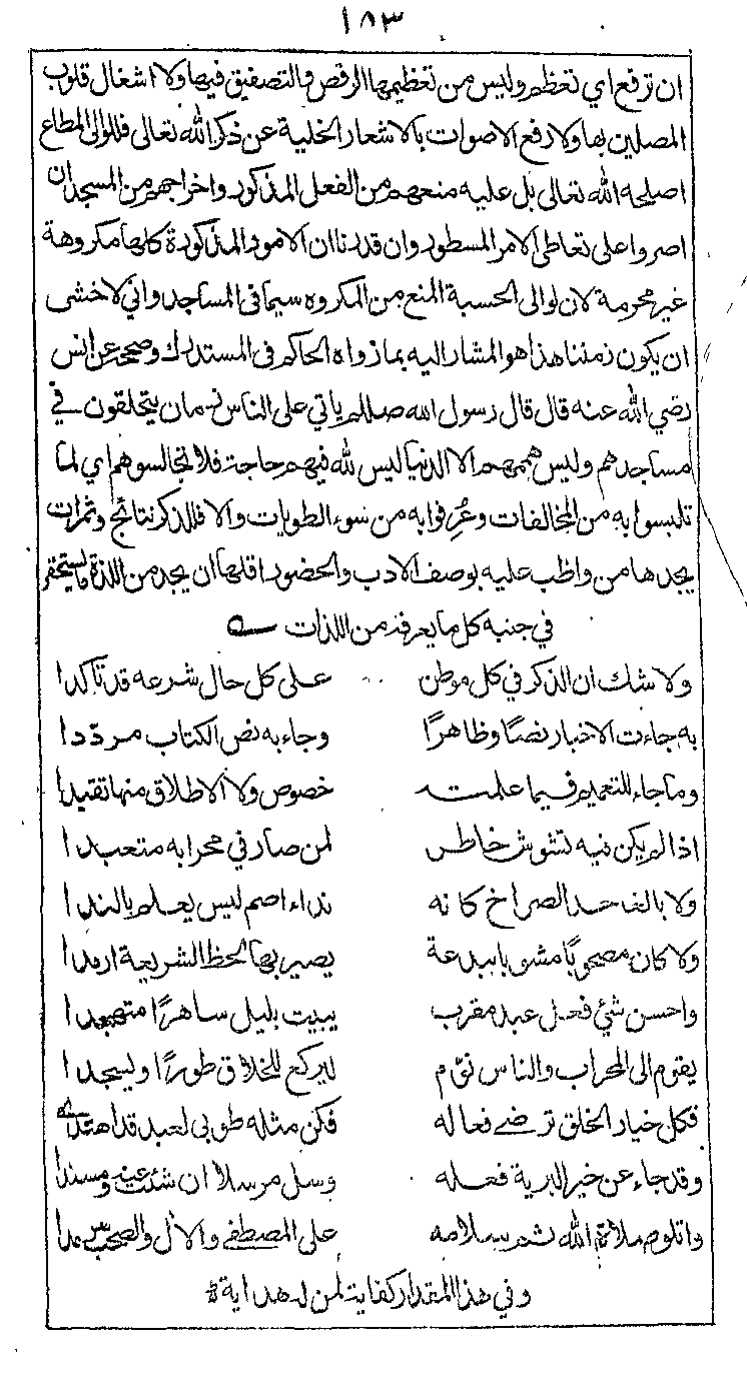 ١٨٣
ان ترفع اي تعظم وليس من تعظيمها الرقص والتصفيق فيها ولا اشغال قلوب
المصلين بها ولا رفع الاصوات بالاشعار الخلية عن ذكر الله تعالى فللوالى المطاع
اصلحه الله تعالى بل عليه منعهم من الفعل المذكور واخراجهم من المسجد ان
اصروا على تعاطى الامر المسطور وان قدرنا ان الامور المذكورة كلها مكروهة
غير محرمة لان لوالى الحسبة المنع من المكروه سيما فى المساجد واني لاخشى
ان يكون زمننا هذا هو المشار اليه بما رواه الحاكم فى المستدرك وصححه عن انس
رضي الله عنه قال قال رسول الله صللم ياتي على الناس زمان يتحلقون في
مساجدهم وليس همهم الا الدنيا ليس لله فيهم حاجة فلا تجالسوهم اي لما
تلبسوا به من المخالفات وعُرِفوا به من سوء الطويات والا فللذكر نتائج وثمرات
يجدها من واظب عليه بوصف الادب والحضور اقلها ان يجد من اللذة ما يستحقر
في جنبه كل ما يعرفه من اللذات
ولا شك ان الذكر في كل موطن على كل حال شرعه قد تأكدا
به جاءت الاخبار نصًا وظاهرًا وجاء به نص الكتاب مرددا
وما جاء للتعميم فيما علمته خصوص ولا الاطلاق منها تقيدا
اذا لم يكن فيه تشوش خاطر لمن صار في محرابه متعبدا
ولا بالغا حد الصراخ كانه نداء اصم ليس يعلم بالندا
ولا كان مصحوبًا مشوبا ببدعة يصير بها لحظ الشريعة ارمدا
واحسن شئ فعل عبد مقرب يبيت بليل ساهرًا متهجدا
يقوم الى المحراب والناس نوّم ليركع للخلاق طورًا ويسجدا
فكل خيار الخلق ترضى فعاله فكن مثله طوبى لعبد قد اهتدى
وقد جاء عن خير البرية فعله وسل مرسلا ان شئت عنه ومسندا
واتلو صلاة الله ثم سلامه على المصطفى والآل والصحب سرمدا
وفي هذا المقدار كفاية لمن له هداية